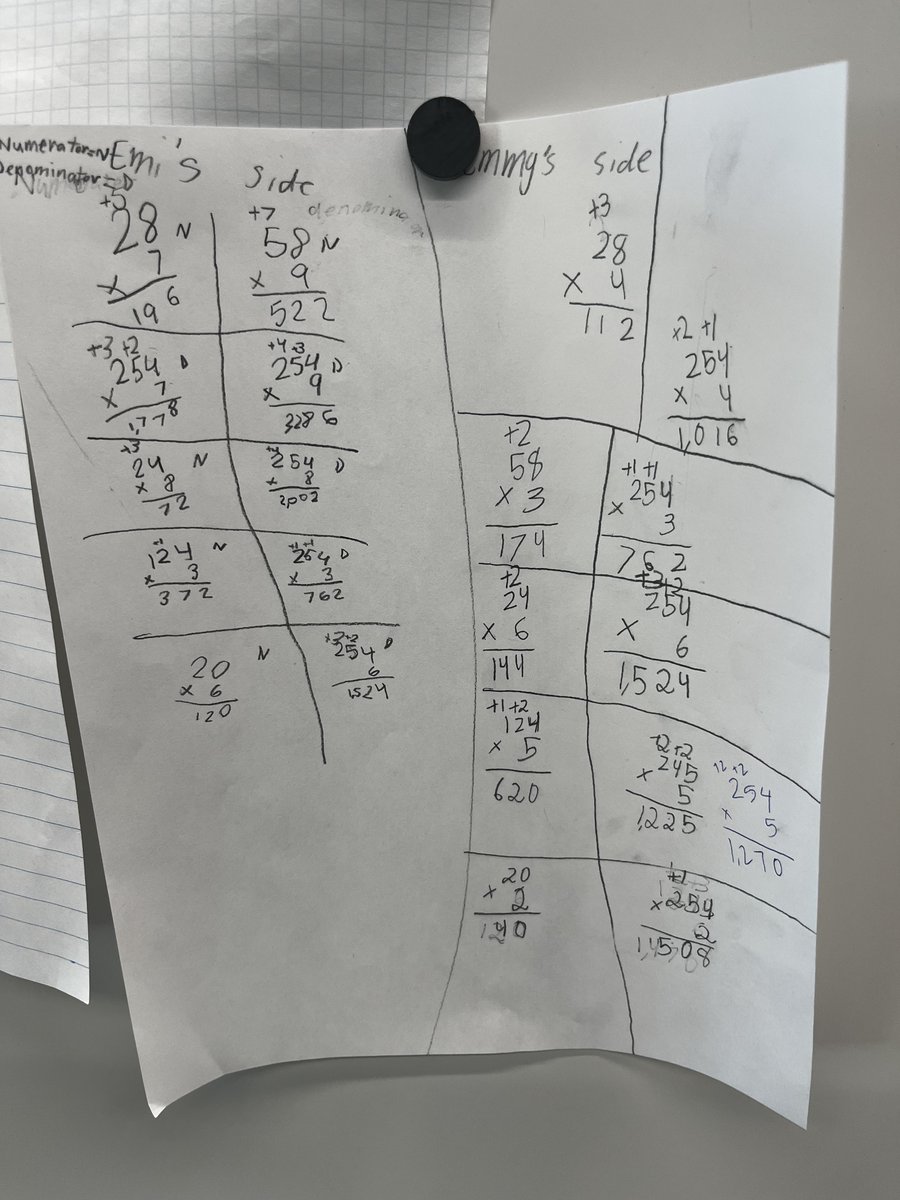 Numerator=N
Denominator=D
Emi's side
+5
28 N
x 7
196
+7
58 N
x 9
522
+3 +2
254 D
x 7
1,778
+4 +3
254 D
x 9
3286
+3
24 N
x 8
72
254 D
x 8
2002
+1
124 N
x 3
372
+1 +1
254 D
x 3
762
20 N
x 6
120
+3 +2
254 D
6
1524
emmy's side
+3
28
x 4
112
x2 +1
254
x 4
1,016
+2
58
x 3
174
+1 +1
254
x 3
762
+2
24
x 6
144
+3 +2
254
x 6
1,524
+1 +2
124
x 5
620
+2 +2
245
x 5
1,225
+2 +2
254
x 5
1,270
20
x 2
+1
254
x 2